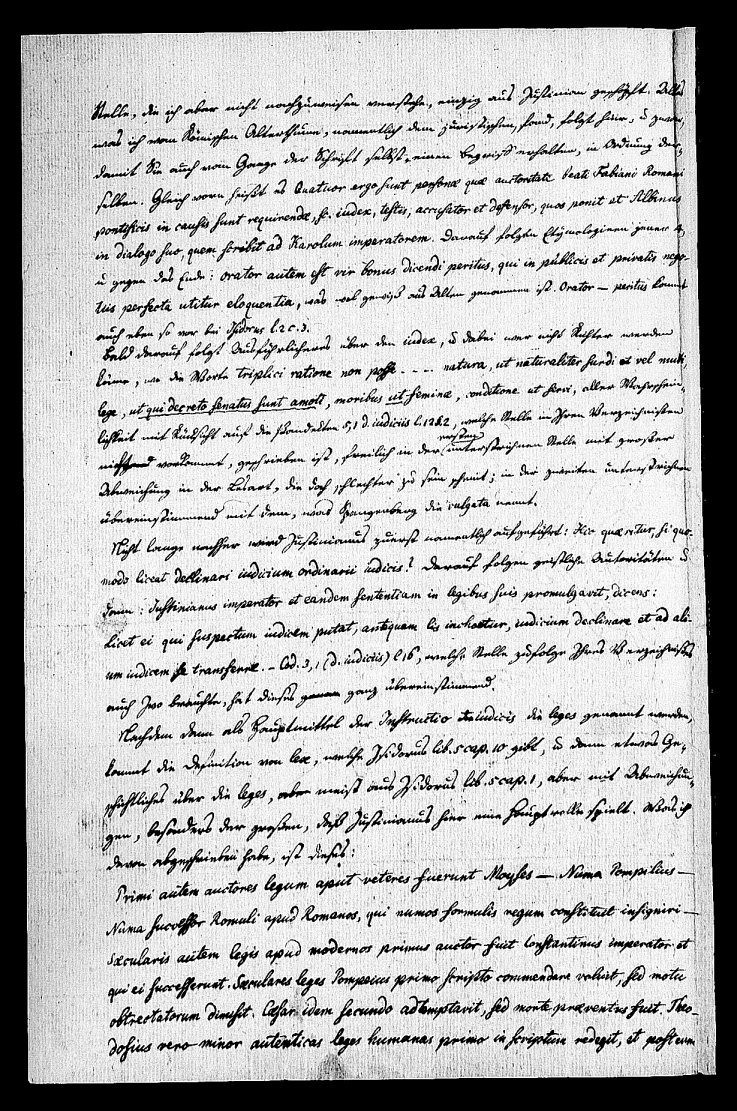 Stelle, die ich aber nicht nachzuweisen verstehe, einzig aus Justinian geschöpft. Alles
was ich vom Römischen Alterthume, namentlich dem juristischen, fand, folgt hier, u zwar,
damit Sie auch vom Gange der Schrift selbst einen Begriff erhalten, in Ordnung der-
selben. Gleich vorn heißt es Quatuor ergo sunt personæ quæ auctoritate beati Fabiani Romani
pontificis in causis sunt requirendæ, sc. iudex, testis, accusator et defensor, quos ponit et Albinus
in dialogo suo, quem scribit ad Karolum imperatorem. Darauf folgen Etymologieen jener 4,
u gegen das Ende: orator autem est vir bonus dicendi peritus, qui in publicis et privatis nego-
tiis perfecta utitur eloquentia, was wol gewiß aus Alten genommen ist. Orator — peritus kommt
auch eben so vor bei Isidorus l. 2 c. 3.
Bald darauf folgt Ausführlicheres über den iudex, u dabei wer nicht Richter werden
könne, wo die Worte triplici ratione non posse . . . . natura, ut naturaliter surdi et vel muti,
lege, ut qui decreto senatus sunt amoti, moribus ut feminæ, conditione ut servi, aller Wahrschein-
lichkeit mit Rücksicht auf die Pandekten 5, 1 d. iudiciis l. 12 § 2, welche Stelle in Ihren Verzeichnissen
vorkommt, geschrieben ist, freilich in der ersten unterstrichnen Stelle mit großer
Abweichung in der Lesart, die doch schlechter zu sein scheint; in der zweiten unterstrichnen
übereinstimmend mit dem, was Spangenberg die vulgata nennt.
Nicht lange nachher wird Justinianus zuerst namentlich aufgeführt: Hic quæritur, si quo-
modo liceat declinari iudicium ordinarii iudicis? Darauf folgen geistliche Autoritäten u
dann: Justinianus imperator et eandem sententiam in legibus suis promulgavit, dicens:
licet ei qui suspectum iudicem putat, antequam lis inchoetur, iudicium declinare et ad ali-
um iudicem se transferre. – Cod. 3, 1 (d. iudiciis) l 16, welche Stelle zufolge Ihres Verzeichnisses
auch Ivo brauchte, hat dieses ganz übereinstimmend.
Nachdem dann als Hauptmittel der Instructio iudicis die leges genannt werden,
kommt die Definition von lex, welche Isidorus lib. 5 cap. 10 gibt, u dann etwas Ge-
schichtliches über die leges, aber meist aus Isidorus lib. 5 cap. 1, aber mit Abweichun-
gen, besonders der großen, daß Justinianus hier eine Hauptrolle spielt. Was ich
davon abgeschrieben habe, ist dieses:
Primi autem auctores legum aput veteres fuerunt Moyses — Numa Pompilius —
Numa successor Romuli apud Romanos, qui numos formulis regum constituit insigniri —
Sæcularis autem legis apud modernos primus auctor fuit Constantinus imperator et
qui ei successerunt. Sæculares leges Pompeius primo scripto commendare voluit, sed metu
obtrectatorum dimisit. Cæsar idem secundo adtemptavit, sed morte præventus fuit. Theo-
dosius vero minor autenticas leges humanas primo in scriptum redegit, et post eum